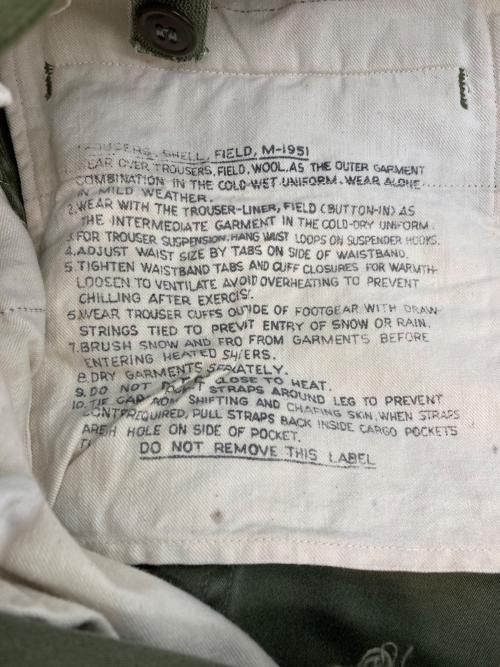 TROUSERS, SHELL, FIELD, M-1951
WEAR OVER TROUSERS, FIELD, WOOL, AS THE OUTER GARMENT
COMBINATION IN THE COLD-WET UNIFORM. WEAR ALONE
IN MILD WEATHER.
2. WEAR WITH THE TROUSER-LINER, FIELD (BUTTON-IN) AS
THE INTERMEDIATE GARMENT IN THE COLD-DRY UNIFORM.
3. FOR TROUSER SUSPENSION, HANG WAIST LOOPS ON SUSPENDER HOOKS.
4. ADJUST WAIST SIZE BY TABS ON SIDE OF WAISTBAND.
5. TIGHTEN WAISTBAND TABS AND CUFF CLOSURES FOR WARMTH-
LOOSEN TO VENTILATE AVOID OVERHEATING TO PREVENT
CHILLING AFTER EXERCIS.
6. WEAR TROUSER CUFFS OU'IDE OF FOOTGEAR WITH DRAW-
STRINGS TIED TO PREV'T ENTRY OF SNOW OR RAIN.
7. BRUSH SNOW AND FRO FROM GARMENTS BEFORE
ENTERING HEATED ERS.
8. DRY GARMENTS ATELY.
9. DO NOT CLOSE TO HEAT.
10. TIE STRAPS AROUND LEG TO PREVENT
SHIFTING AND CHAFING SKIN. WHEN STRAPS
REQUIRED, PULL STRAPS BACK INSIDE CARGO POCKETS
HOLE ON SIDE OF POCKET.
DO NOT REMOVE THIS LABEL